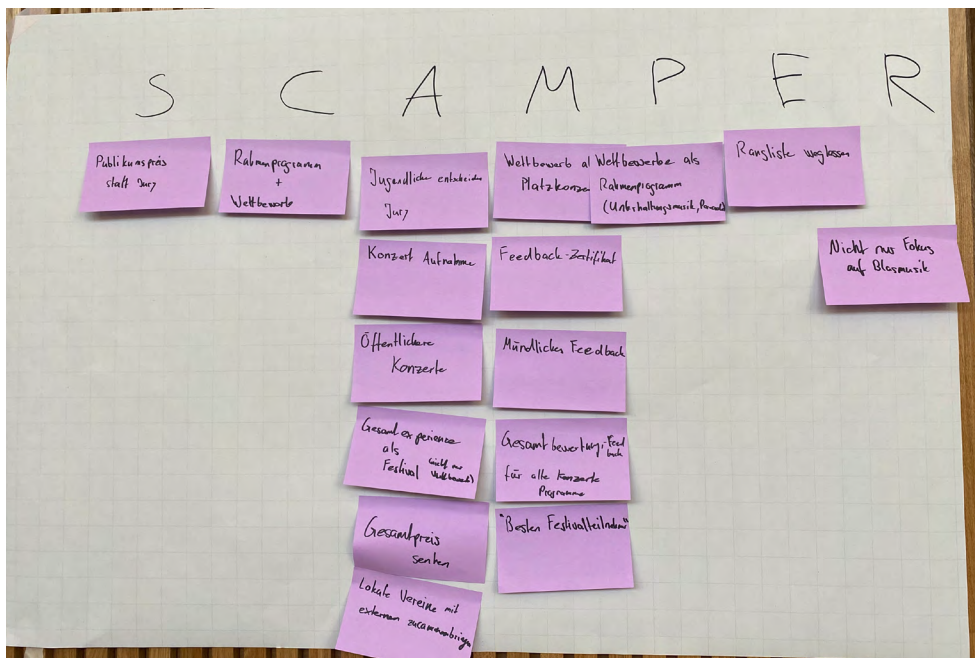 S C A M P E R
Publikumspreis
statt Jury
Rahmenprogramm
+
Wettbewerb
Jugendliche entscheiden
Jury
Konzert Aufnahme
Öffentlichere
Konzerte
Gesamtexperience
als
Festival (nicht nur
Wettbewerb)
Gesamtpreis
senken
Lokale Vereine mit
externen zusammenbringen
Wettbewerb al
Platzkonze
Feedback-Zertifikat
Mündliches Feedback
Gesamtbewertung/Feed
back
für alle Konzerte
Programme
"Besten Festivalteilnehmer"
Wettbewerbe als
Rahmenprogramm
(Unterhaltungsmusik, Parade)
Rangliste weglassen
Nicht nur Fokus
auf Blasmusik